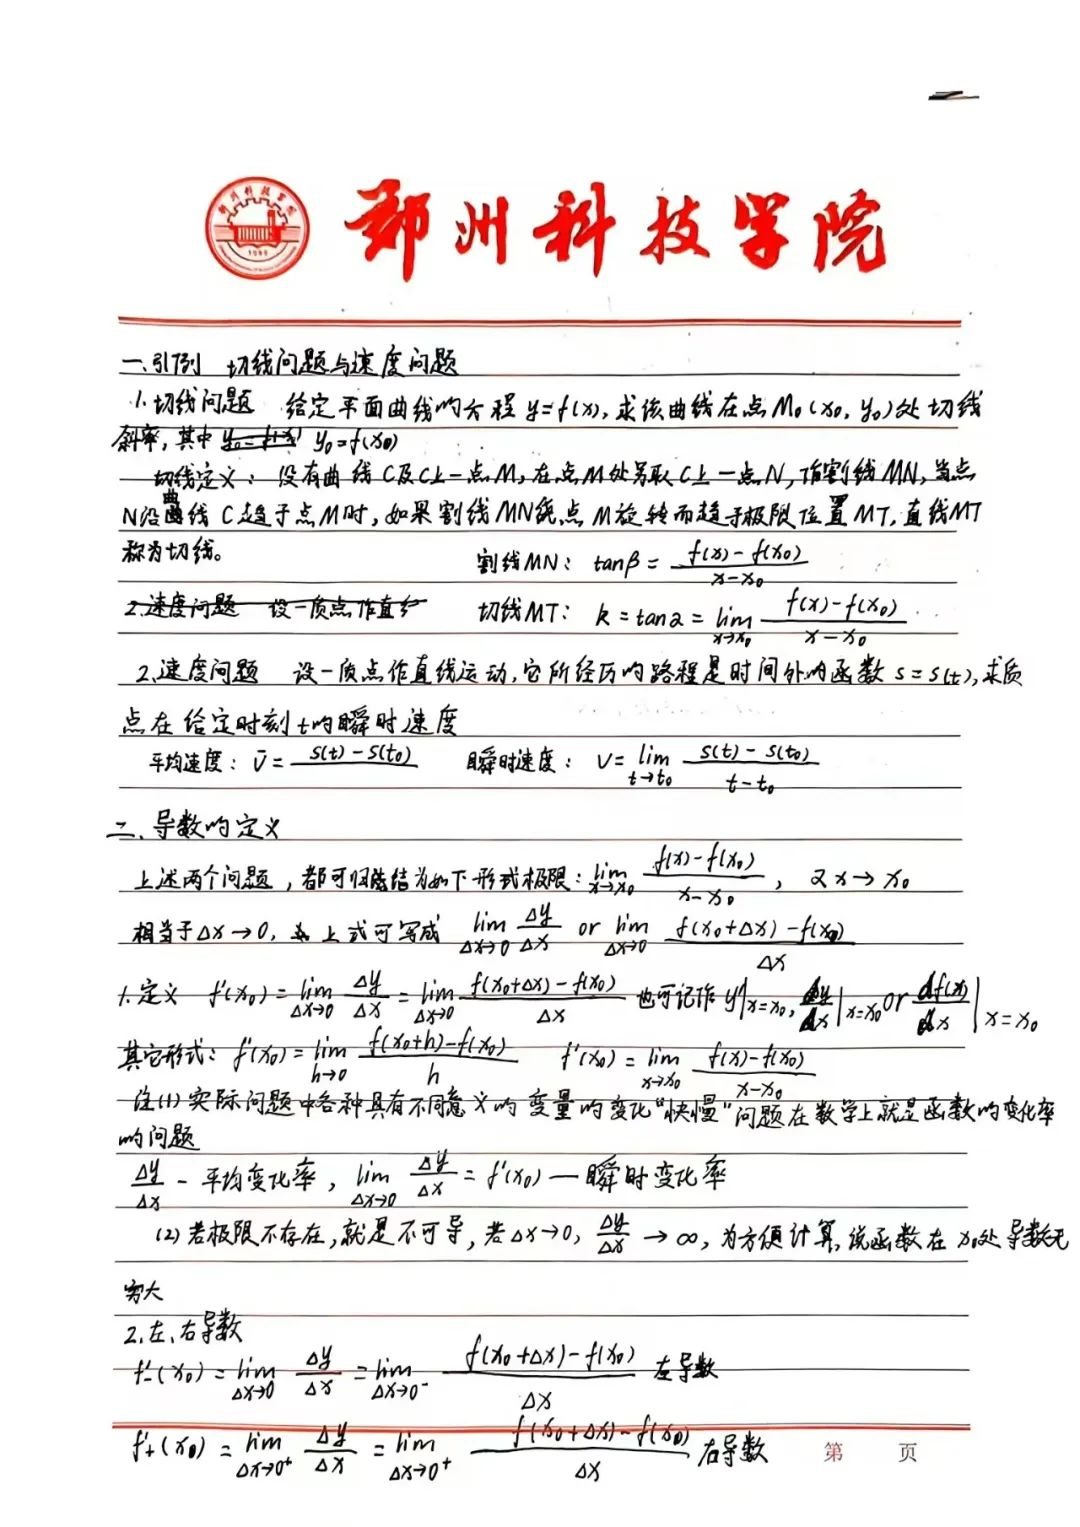 郑州科技学院
一、引例 切线问题与速度问题
1.切线问题 给定平面曲线的方程 y=f(x), 求该曲线在点M₀(x₀, y₀)处切线
斜率, 其中 y₀=f(x) y₀=f(x₀)
切线定义: 设有曲线C及C上一点M, 在点M处另取C上一点N, 作割线MN, 当点
N沿曲线C趋于点M时, 如果割线MN绕点M旋转而趋于极限位置MT, 直线MT
称为切线。 割线MN: tanβ = (f(x)-f(x₀))/(x-x₀)
2.速度问题 设一质点作直线 切线MT: k=tanα=lim_{x→x₀} (f(x)-f(x₀))/(x-x₀)
2.速度问题 设一质点作直线运动, 它所经历的路程是时间外的函数 s=s(t), 求质
点在给定时刻t的瞬时速度
平均速度: v̄=(s(t)-s(t₀))/ 瞬时速度: v=lim_{t→t₀} (s(t)-s(t₀))/(t-t₀)
二、导数的定义
上述两个问题, 都可归结为如下形式极限: lim_{x→x₀} (f(x)-f(x₀))/(x-x₀), 又x→x₀
相当于Δx→0, 上式可写成 lim_{Δx→0} Δy/Δx or lim_{Δx→0} (f(x₀+Δx)-f(x₀))/Δx
1.定义 f'(x₀)=lim_{Δx→0} Δy/Δx=lim_{Δx→0} (f(x₀+Δx)-f(x₀))/Δx 也可记作 y'|x=x₀, dy/dx|x=x₀ or df(x)/dx|x=x₀
其它形式: f'(x₀)=lim_{h→0} (f(x₀+h)-f(x₀))/h f'(x₀)=lim_{x→x₀} (f(x)-f(x₀))/(x-x₀)
注(1)实际问题中各种具有不同意义的变量的变化“快慢”问题在数学上就是函数的变化率
的问题
Δy/Δx - 平均变化率, lim_{Δx→0} Δy/Δx=f'(x₀)—瞬时变化率
(2)若极限不存在, 就是不可导, 若Δx→0, Δy/Δx→∞, 为方便计算, 说函数在x₀处导数无
穷大
2.左、右导数
f'₋(x₀)=lim_{Δx→0} Δy/Δx=lim_{Δx→0⁻} (f(x₀+Δx)-f(x₀))/Δx 左导数
f'₊(x₀)=lim_{Δx→0⁺} Δy/Δx=lim_{Δx→0⁺} (f(x₀+Δx)-f(x₀))/Δx 右导数
第 页